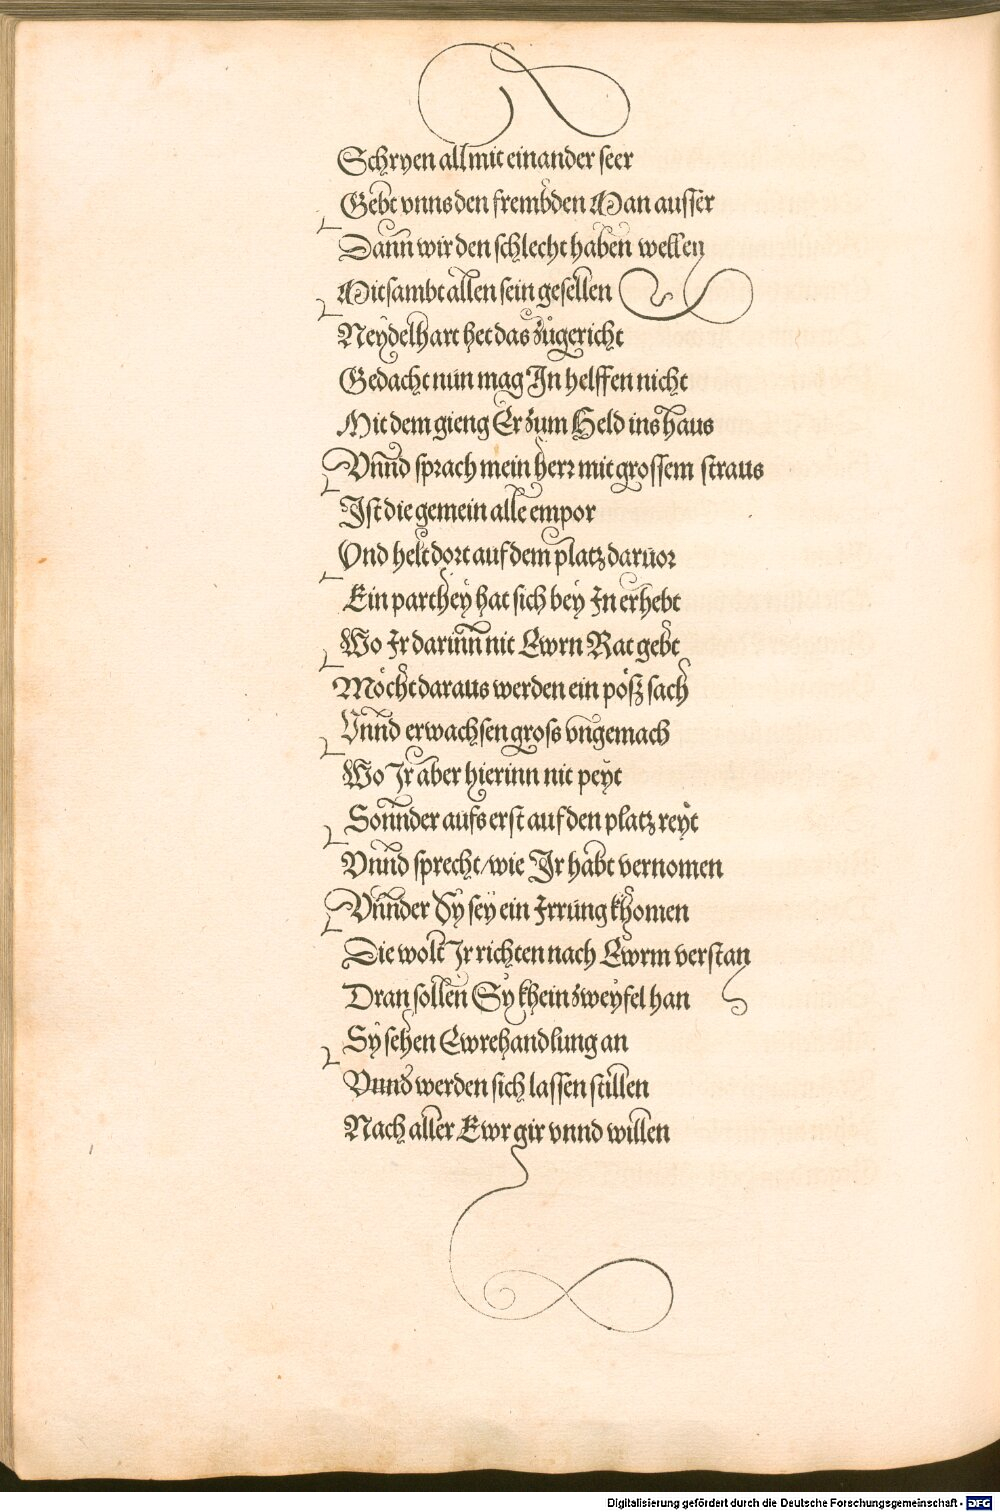 Schryen all mit einander seer
Gebt vnns den frembden Man ausser
Dann wir den schlecht haben wellen
Mitsambt allen sein gesellen
Neydelhart het das zůgericht
Gedacht nun mag In helffen nicht
Mit dem gieng Er zum Held ins haus
Vnnd sprach mein herr mit grossem straus
Ist die gemein alle empor
Vnd helt dort auf dem platz daruor
Ein parthey hat sich bey In erhebt
Wo Ir darinn nit Ewrn Rat gebt
Möcht daraus werden ein pösz sach
Vnnd erwachsen gross vngemach
Wo Ir aber hierinn nit peyt
Sonnder aufs erst auf den platz reyt
Vnnd sprecht/wie Ir habt vernomen
Vnnder Sy sey ein Irrung khomen
Die wolt Ir richten nach Ewrm verstan
Dran sollen Sy khein zweyfel han
Sy sehen Ewre handlung an
Vnnd werden sich lassen stillen
Nach aller Ewr gir vnnd willen
Digitalisierung gefördert durch die Deutsche Forschungsgemeinschaft - DFG